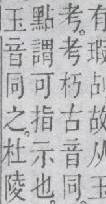 有瑕故从王
考。考朽古音同
點謂可指示也。
玉音同之。杜陵